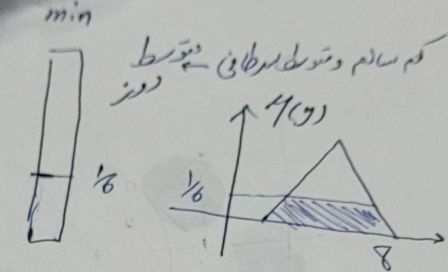 min
کم سالم و متوسط سرطانی ← متوسط
دوز
μ(y)
1/6
1/6
8